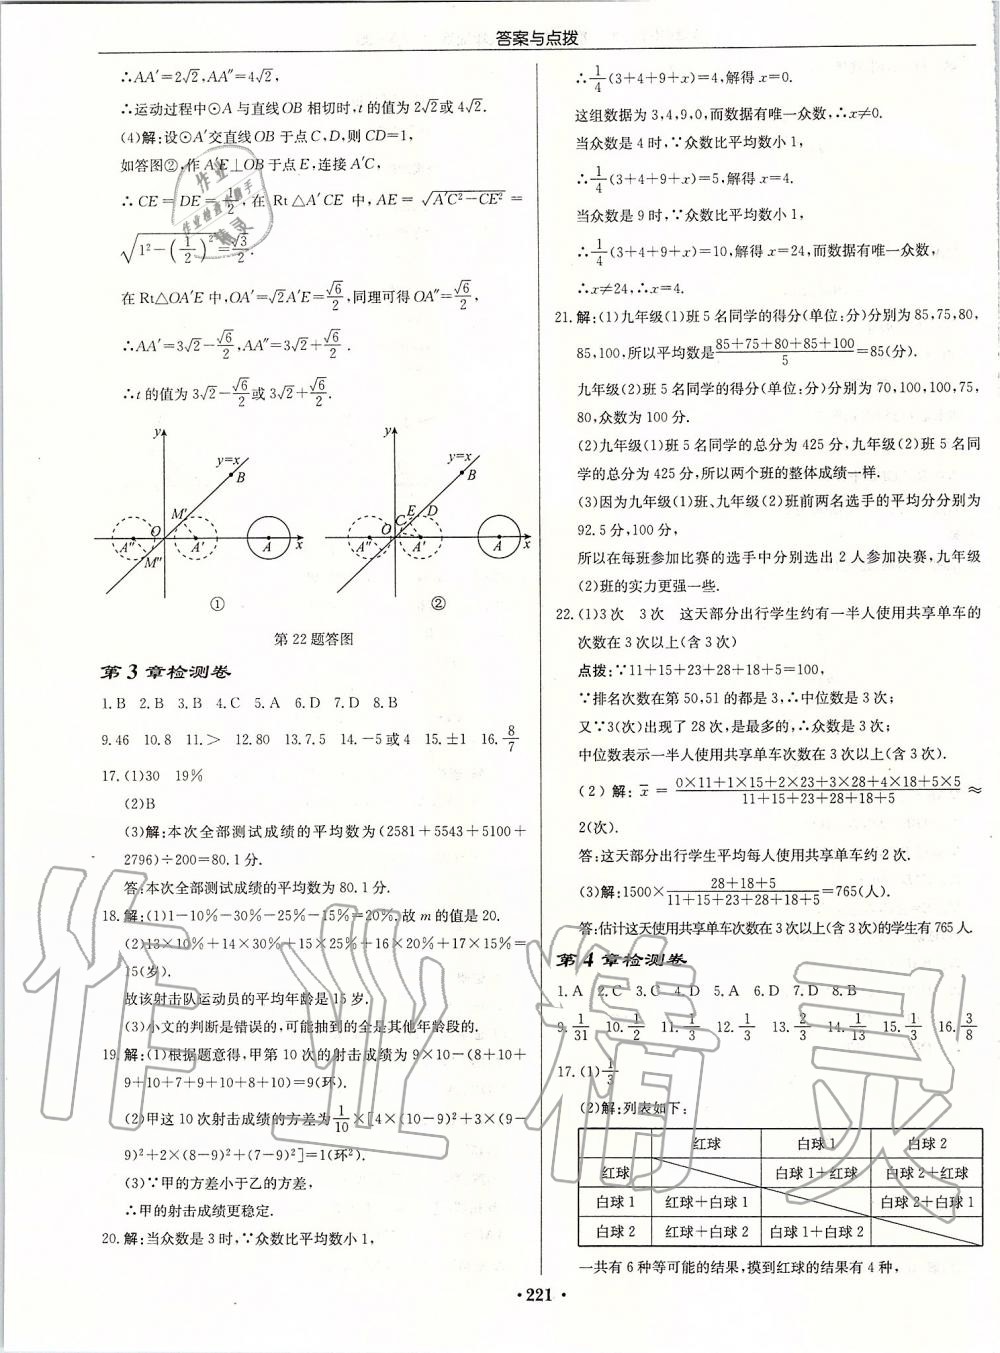 答案与点拨
∴AA′=2√2,AA″=4√2,
∴运动过程中⊙A与直线OB相切时,t的值为2√2或4√2.
(4)解:设⊙A′交直线OB于点C,D,则CD=1,
如答图②,作A′E⊥OB于点E,连接A′C,
∴CE=DE=1/2,在Rt△A′CE中,AE=√(A′C²-CE²)=
√(1²-(1/2)²)=√3/2.
在Rt△OA′E中,OA′=√2A′E=√6/2,同理可得OA″=√6/2,
∴AA′=3√2-√6/2,AA″=3√2+√6/2.
∴t的值为3√2-√6/2或3√2+√6/2.
y y=x B M′ O A″ A′ A x M″
①
y y=x B E D C O A″ A′ A x
②
第22题答图
第3章检测卷
1.B 2.B 3.B 4.C 5.A 6.D 7.D 8.B
9.46 10.8 11.> 12.80 13.7.5 14.-5或4 15.±1 16.8/7
17.(1)30 19%
(2)B
(3)解:本次全部测试成绩的平均数为(2581+5543+5100+
2796)÷200=80.1分.
答:本次全部测试成绩的平均数为80.1分.
18.解:(1)1-10%-30%-25%-15%=20%,故m的值是20.
(2)13×10%+14×30%+15×25%+16×20%+17×15%=
15(岁).
故该射击队运动员的平均年龄是15岁.
(3)小文的判断是错误的,可能抽到的全是其他年龄段的.
19.解:(1)根据题意得,甲第10次的射击成绩为9×10-(8+10+
9+10+7+9+10+8+10)=9(环).
(2)甲这10次射击成绩的方差为1/10×[4×(10-9)²+3×(9-
9)²+2×(8-9)²+(7-9)²]=1(环²).
(3)∵甲的方差小于乙的方差,
∴甲的射击成绩更稳定.
20.解:当众数是3时,∵众数比平均数小1,
∴1/4(3+4+9+x)=4,解得x=0.
这组数据为3,4,9,0,而数据有唯一众数,∴x≠0.
当众数是4时,∵众数比平均数小1,
∴1/4(3+4+9+x)=5,解得x=4.
当众数是9时,∵众数比平均数小1,
∴1/4(3+4+9+x)=10,解得x=24,而数据有唯一众数,
∴x≠24,∴x=4.
21.解:(1)九年级(1)班5名同学的得分(单位:分)分别为85,75,80,
85,100,所以平均数是(85+75+80+85+100)/5=85(分).
九年级(2)班5名同学的得分(单位:分)分别为70,100,100,75,
80,众数为100分.
(2)九年级(1)班5名同学的总分为425分,九年级(2)班5名同
学的总分为425分,所以两个班的整体成绩一样.
(3)因为九年级(1)班、九年级(2)班前两名选手的平均分分别为
92.5分,100分,
所以在每班参加比赛的选手中分别选出2人参加决赛,九年级
(2)班的实力更强一些.
22.(1)3次 3次 这天部分出行学生约有一半人使用共享单车的
次数在3次以上(含3次)
点拨:∵11+15+23+28+18+5=100,
∵排名次数在第50,51的都是3,∴中位数是3次;
又∵3(次)出现了28次,是最多的,∴众数是3次;
中位数表示一半人使用共享单车次数在3次以上(含3次).
(2)解:x̄=(0×11+1×15+2×23+3×28+4×18+5×5)/(11+15+23+28+18+5)≈
2(次).
答:这天部分出行学生平均每人使用共享单车约2次.
(3)解:1500×(28+18+5)/(11+15+23+28+18+5)=765(人).
答:估计这天使用共享单车次数在3次以上(含3次)的学生有765人.
第4章检测卷
1.A 2.C 3.C 4.D 5.A 6.D 7.D 8.B
9.1/31 10.1/2 11.1/3 12.1/3 13.2/3 14.1/13 15.1/3 16.3/8
17.(1)1/3
(2)解:列表如下:
红球 白球1 白球2
红球 白球1+红球 白球2+红球
白球1 红球+白球1 白球2+白球1
白球2 红球+白球2 白球1+白球2
一共有6种等可能的结果,摸到红球的结果有4种,
·221·
作业精灵